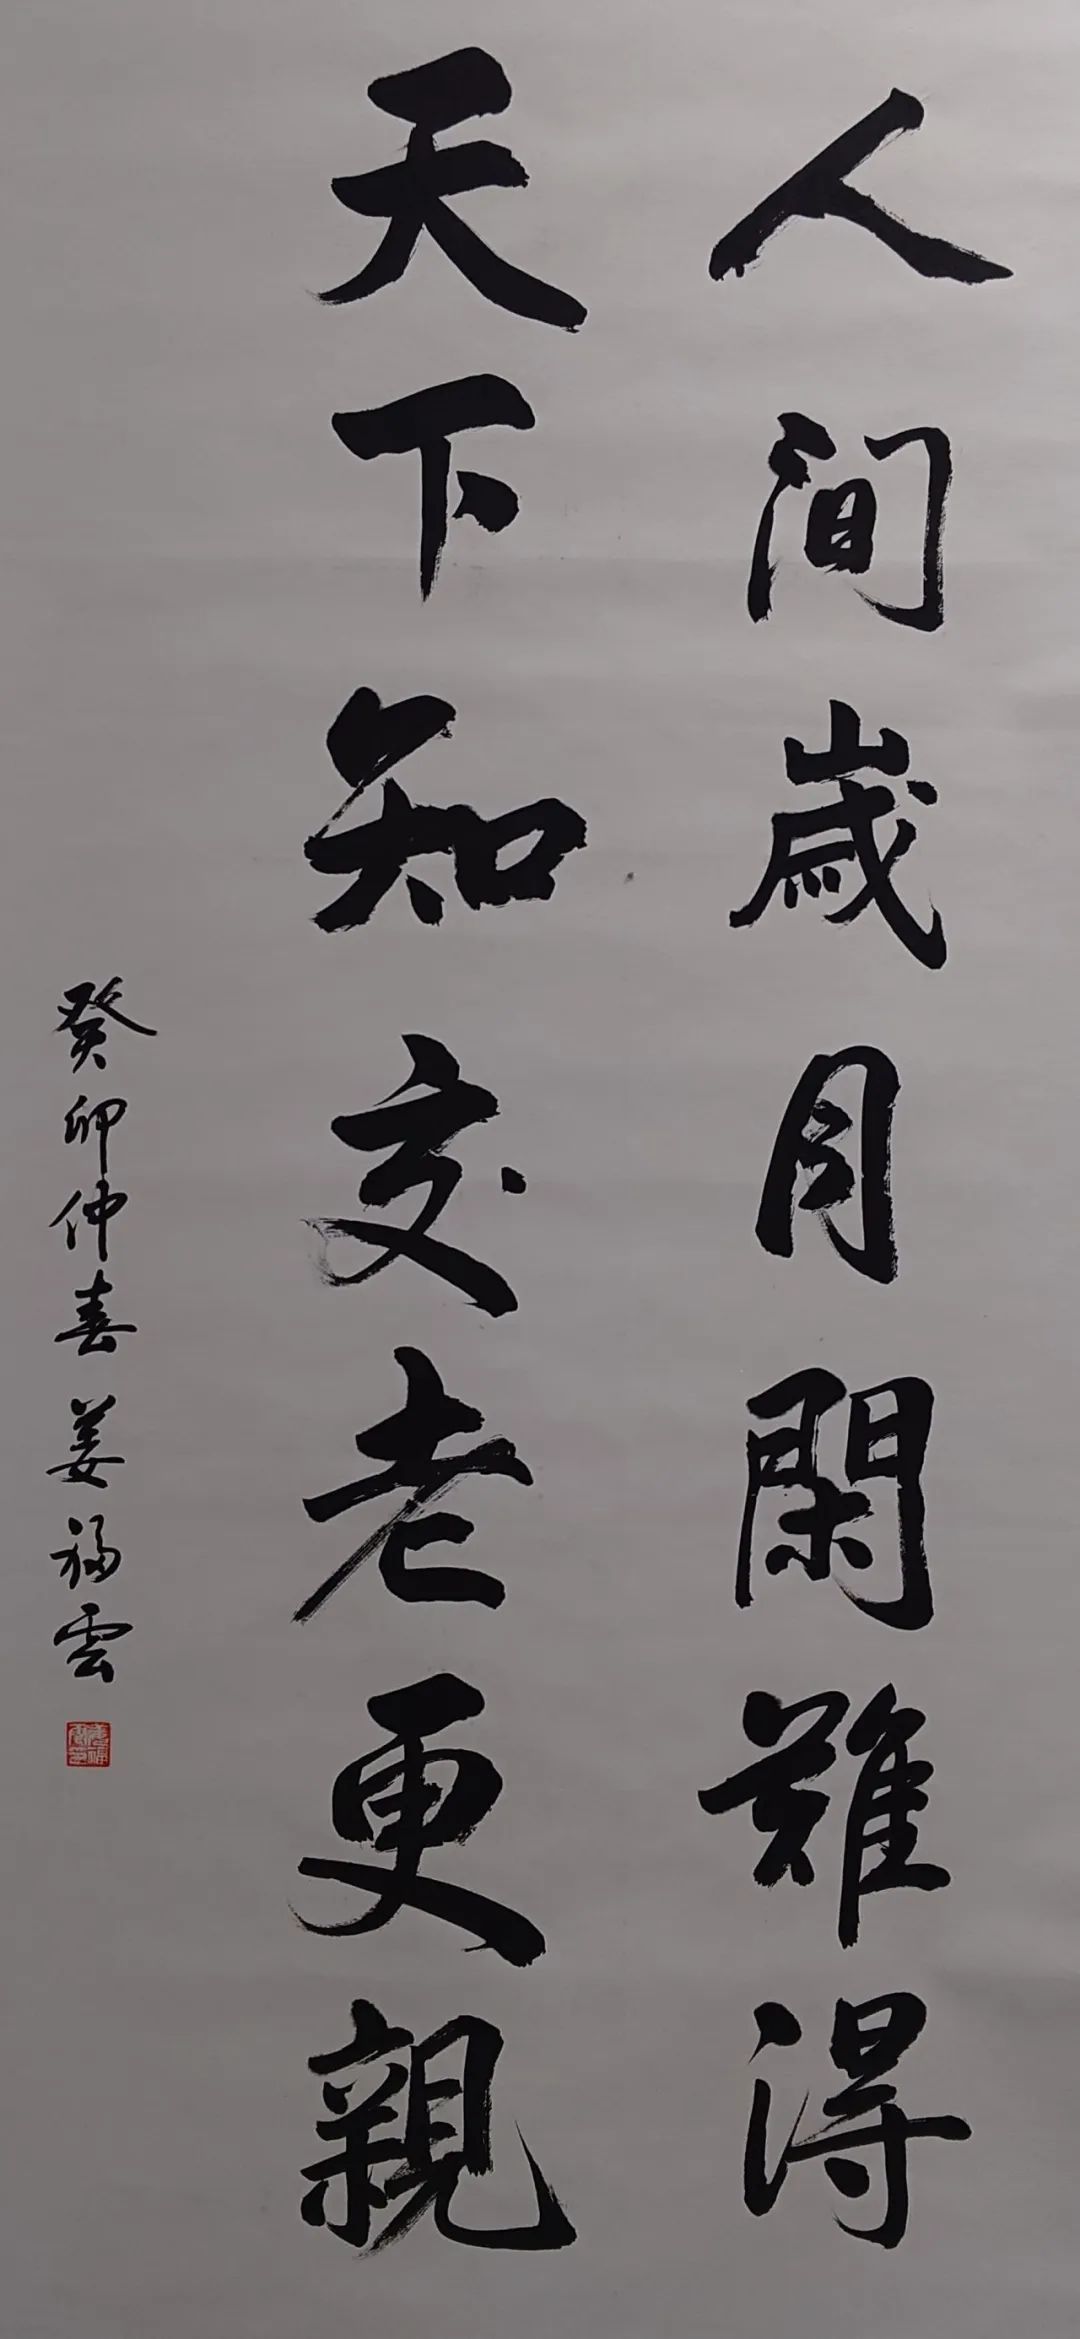 人間歲月閑難得
天下知交老更親
癸卯仲春姜福雲